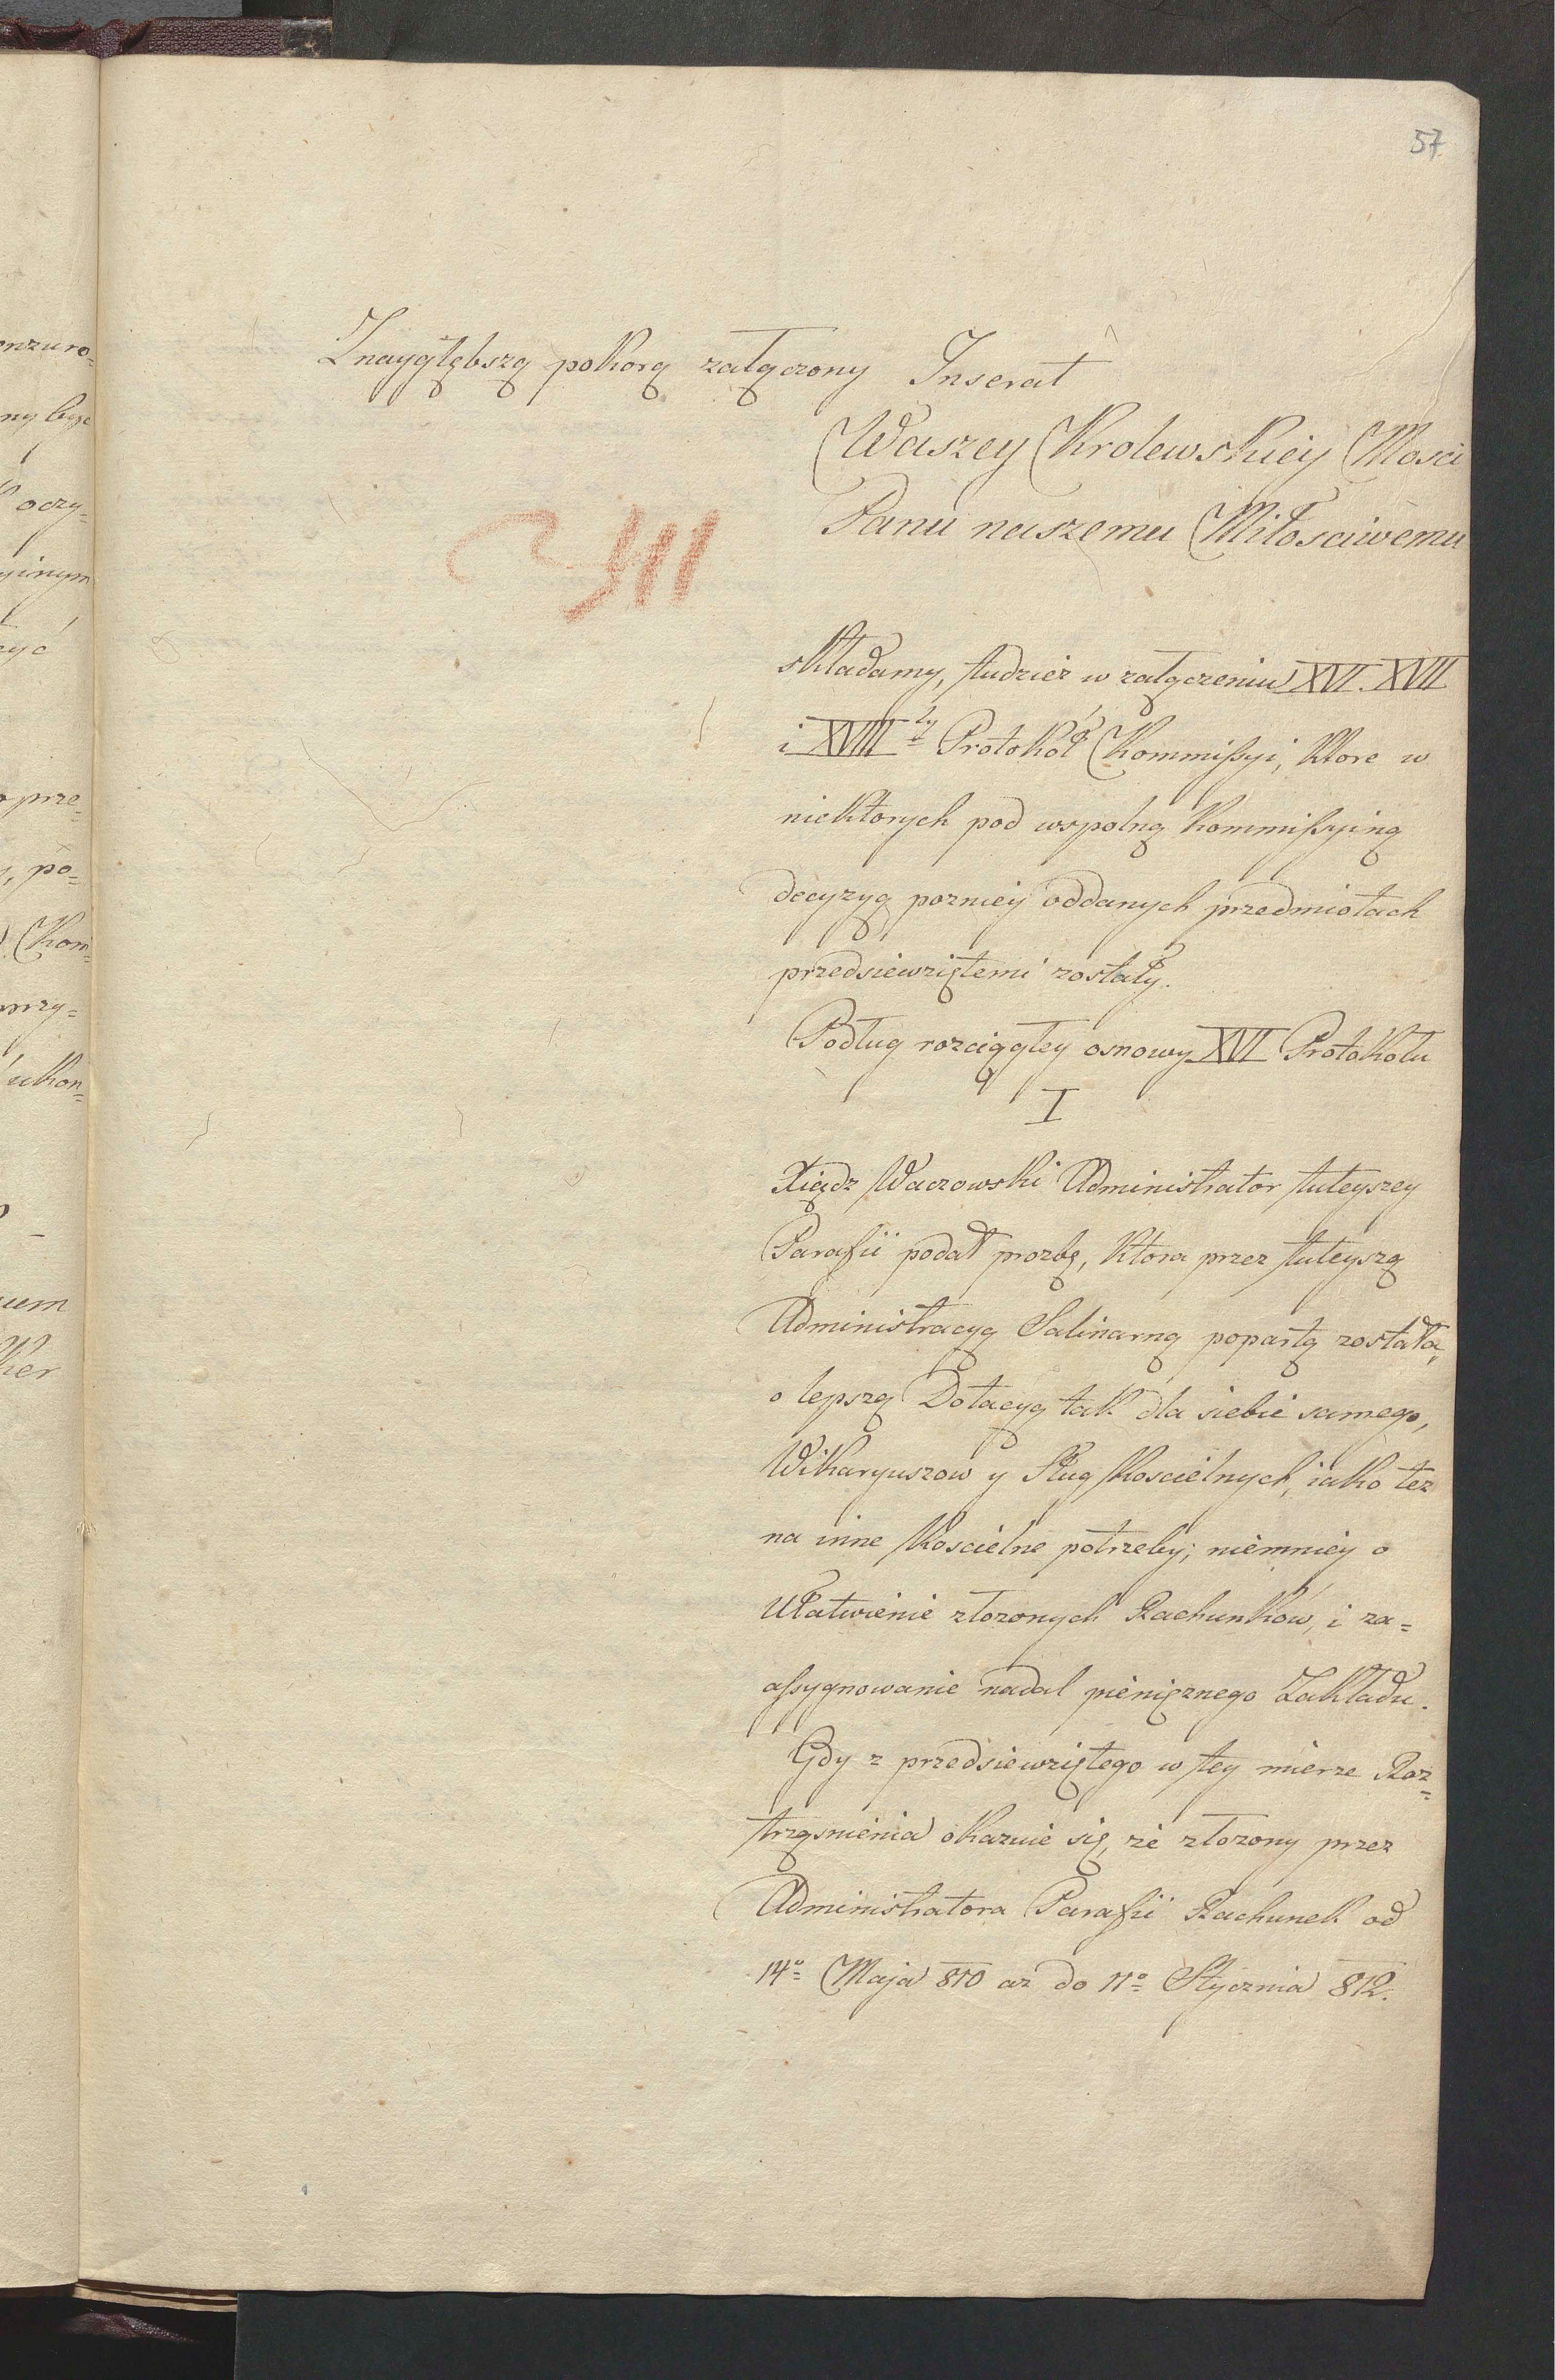 57
Z naygłębszą pokorą załączony Inserat
Waszey Krolewskiey Mosci
Panu naszemu Miłosciwemu
składamy, tudzież w załączeniu XVI. XVII
i XVIII ty Protokół Kommissyi, ktore w
niektorych pod wspolną Kommissyiną
decyzyą pozniey oddanych przedmiotach
przedsiewziętemi zostały.
Podług rozciągłey osnowy XVI Protokołu
I
Xiądz Waczowski Administrator tuteyszey
Parafii podał prozbę, ktora przez tuteyszą
Administracyą Salinarną popartą została,
o lepszą Dotacyą tak dla siebie samego,
Wikaryuszow y Sług Koscielnych, iako tez
na inne Koscielne potrzeby; niemniey o
Ułatwienie złozonych Rachunków, i za=
assygnowanie nadal pienięznego Zakładu.
Gdy z przedsiewziętego w tey mierze Roz=
trząsnienia okazuie się, ze złozony przez
Administratora Parafii Rachunek od
14o Maja 810 az do 11o Stycznia 812.
onzuro=
ny byc
oczy=
yinym
zyć
prze=
, po=
Kom=
przy=
ukon=